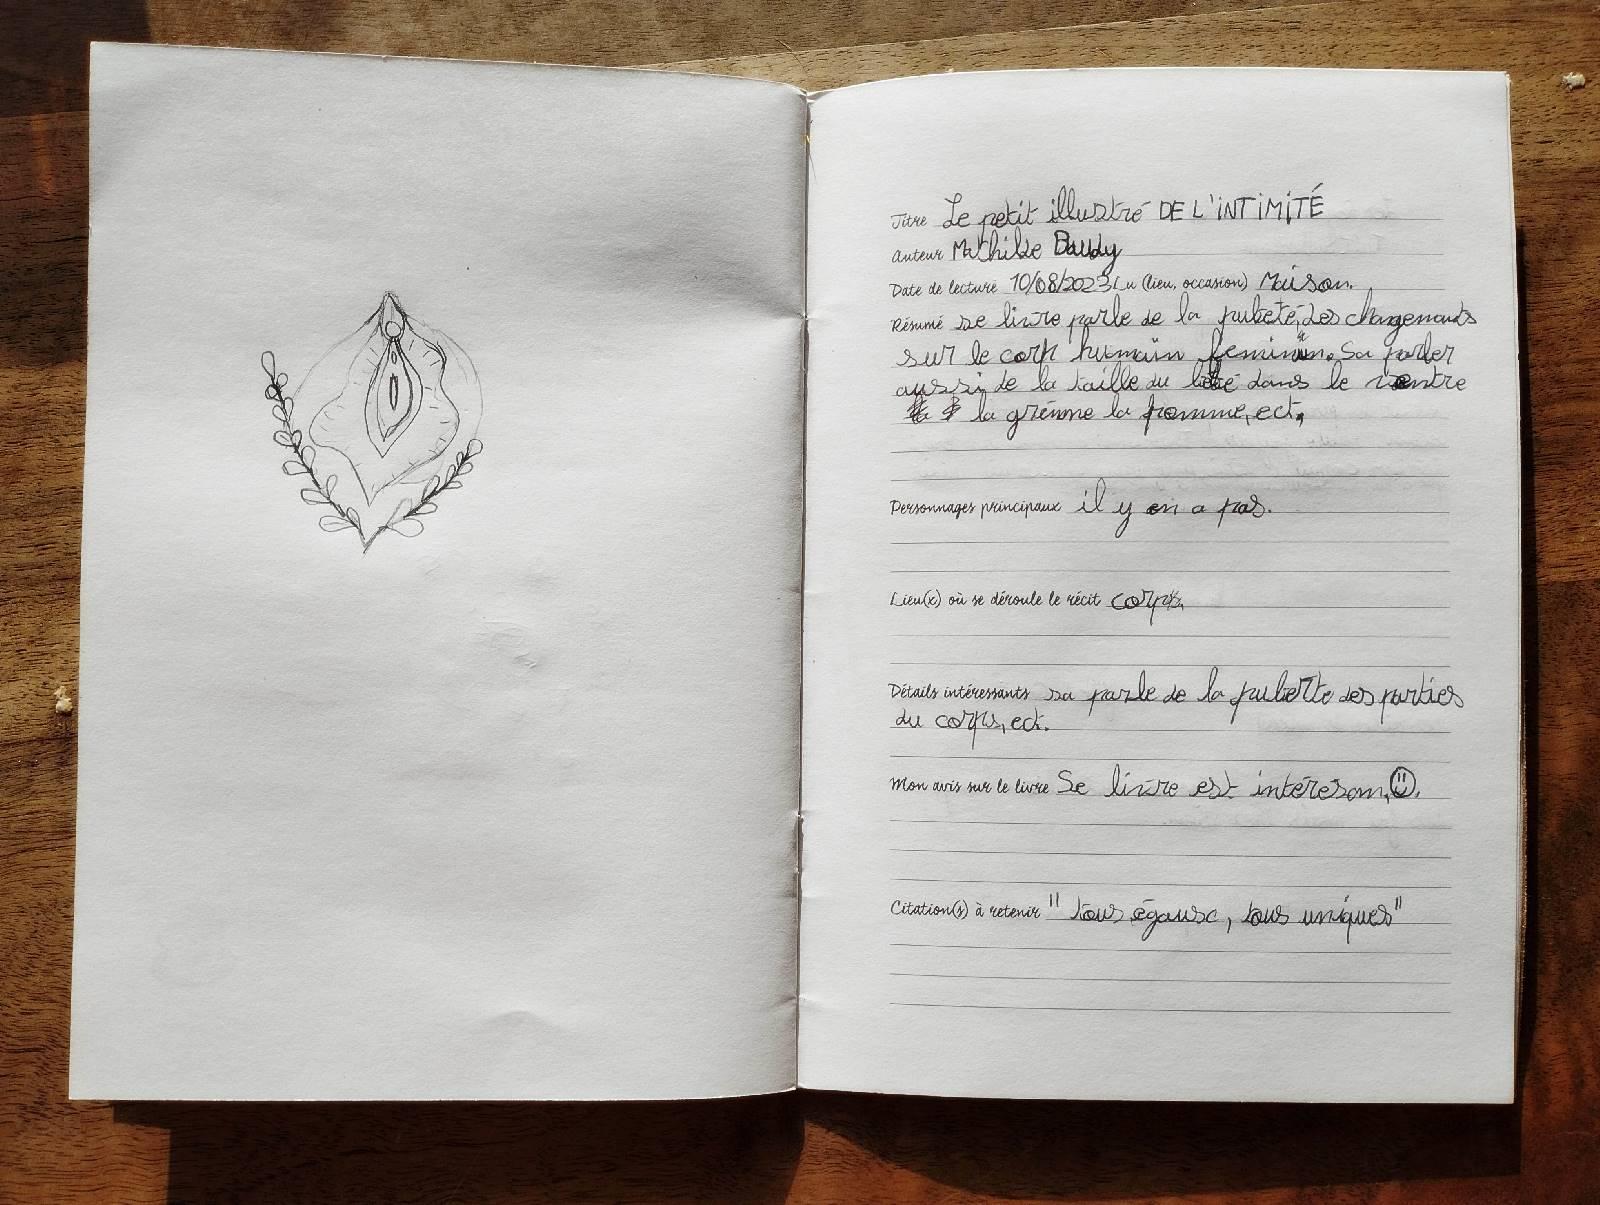 Titre Le petit illustré DE L'iNTiMiTÉ
Auteur Mathilde Baudy
Date de lecture 10/08/2023 Lu (lieu, occasion) Maison.
Résumé se livre parle de la pubeté, des changemants
sur le corp humain feminin. Sa parler
aussi de la taille du bébé dans le ventre
la femme, ect.
Personnages principaux il y en a pas.
Lieu(x) où se déroule le récit corps.
Détails intéressants sa parle de la puberte des parties
du corps, ect.
Mon avis sur le livre Se livre est intéresom.
Citation(s) à retenir "tous égaux, tous uniques"